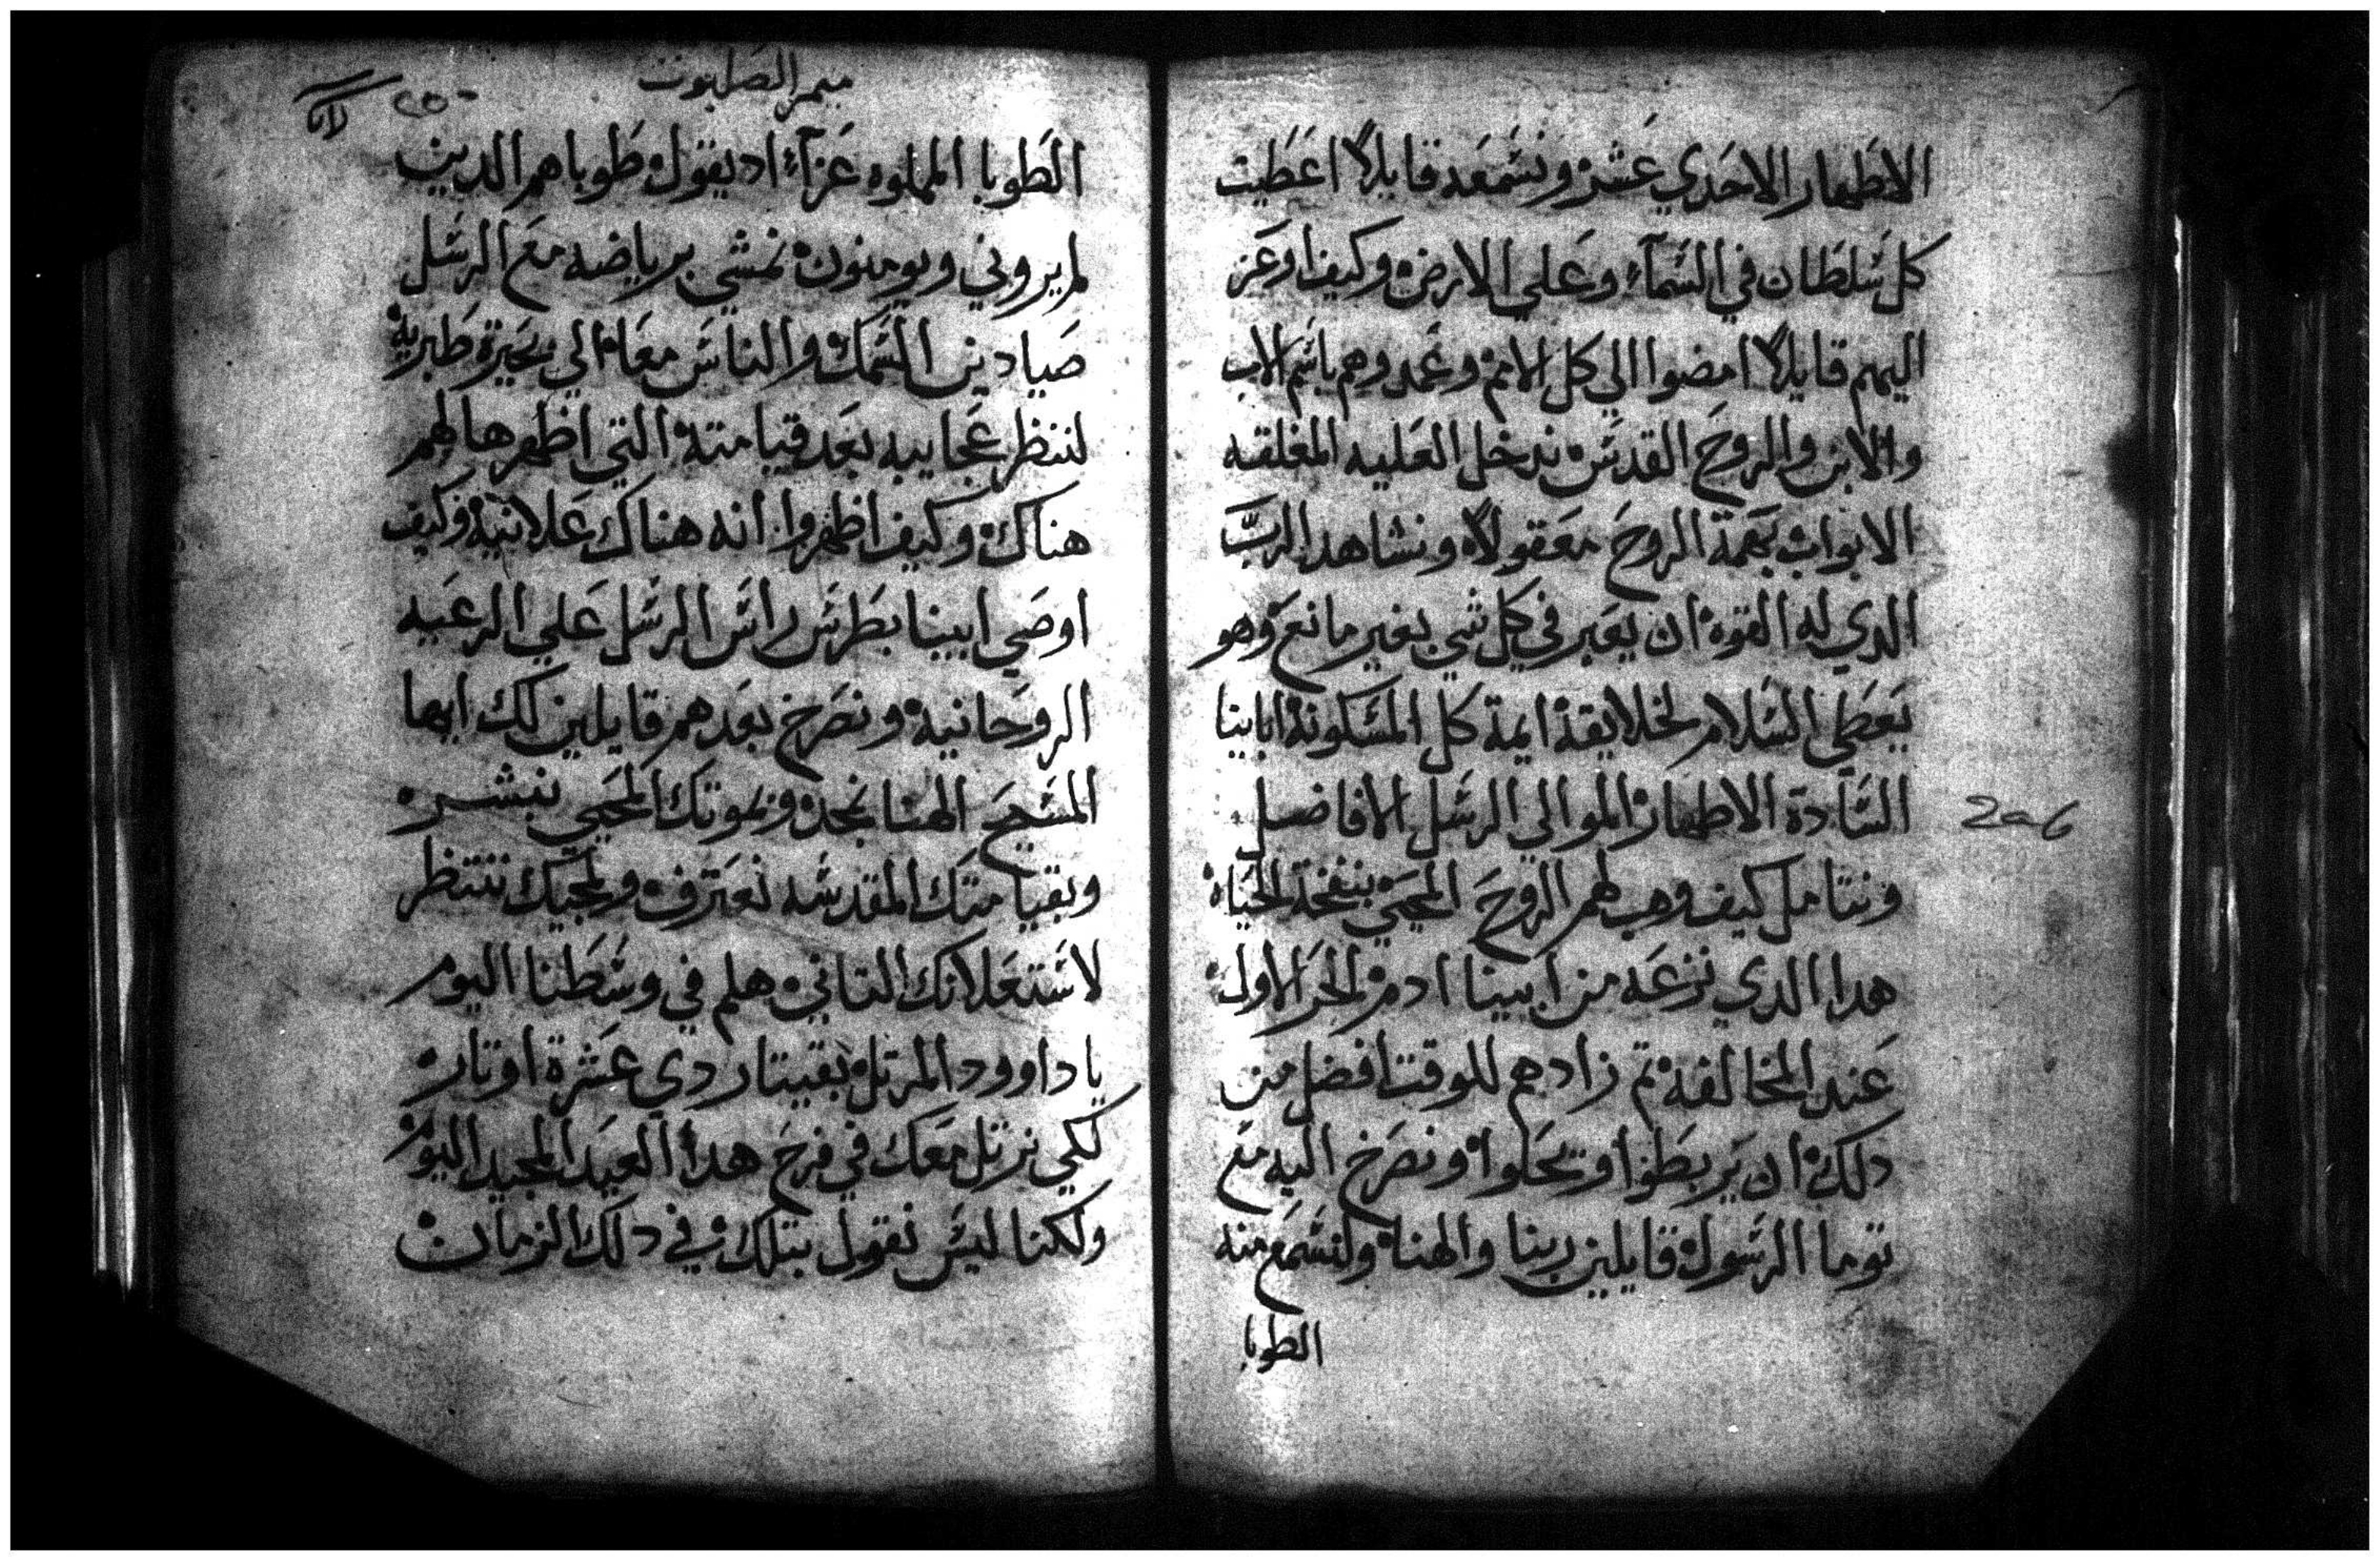 الاطهار الاحدي عشر ونسمعه قايلاً اعطيت
كل سلطان في السمآء وعلي الارض وكيف اوعز
اليهم قايلاً امضوا الي كل الامم وعمدوهم باسم الاب
والابن والروح القدس ندخل العليه المغلقه
الابواب بهمة الروح معقولاً ونشاهد الربّ
الدي له القوه ان يعبر في كل شي بغير مانع وهو
يعطي السلام لخلايقة ايمة كل المسكونة ابابينا
السادة الاطهار الموالي الرسل الافاضل
ونتامل كيف وهب لهم الروح المحيي بنفخة الحياة
هدا الدي نزعه من ابينا ادم الحر الاول
عند المخالفه تم زادهم للوقت افضل من
دلك ان يربطوا ويحلوا ونصرخ اليه مع
توما الرسول قايلين ربنا والهنا ولنسمع منه
الطوبا
206
ميمر الصلبوت
الطوبا المملوه عزآء اد يقول طوباهم الدين
لم يروني ويومنون نمشي برياضه مع الرسل
صيادين السمك والناس معا الي بحيرة طبرية
لننظر عجايبه بعد قيامتة التي اظهرها لهم
هناك وكيف اظهروا انه هناك علانية وكيف
اوصي ابينا بطرس راس الرسل علي الرعيه
الروحانية ونصرخ بعدهم قايلين لك ايها
المسيح الهنا نجد وبموتك المحيي نبشر
وبقيامتك المقدسه نعترف وبمجيك ننتظر
لاستعلانك التاني هلم في وسطنا اليوم
يا داوود المرتل بقيتار دي عشرة اوتار
لكي نرتل معك في فرح هدا العيد المجيد اليوم
ولكنا ليس نقول بتلك في دلك الزمان